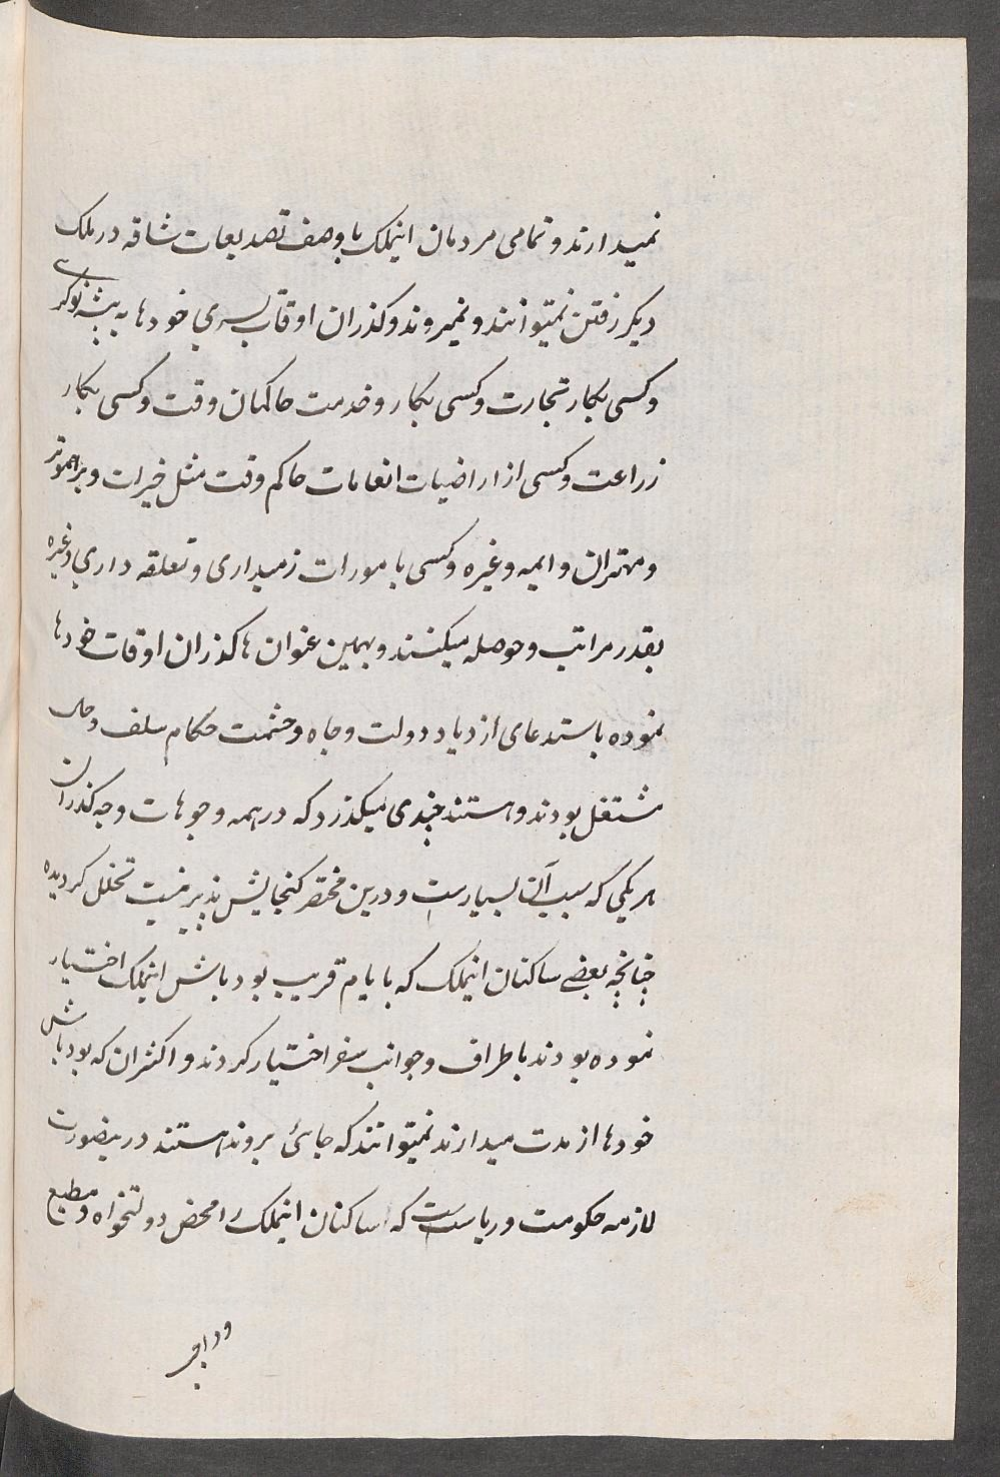 نمیدارند و تمامی مردمان اینملک باوصف تصدیعات شاقه در ملک
دیکر رفتن نمیتوانند و نمیروند و کذران اوقات بسری خودها به پیشه نوکری
و کسی بکار تجارت و کسی بکار و خدمت حاکمان وقت و کسی بکار
زراعت و کسی از اراضیات انعامات حاکم وقت مثل خیرات و برهموتر
و مهتران و ایمه وغیره و کسی بامورات زمیداری و تعلقه داری وغیره
بقدر مراتب و حوصله میکنند و بهمین عنوان ها کذران اوقات خودها
نموده باستدعای ازدیاد دولت و جاه و حشمت حکام سلف و حال
مشتغل بودند و هستند چندی میکذرد که در همه وجوهات وجه کذران
هر یکی که سبب آن بسیارست و درین مختصر کنجایش پذیر نیست تخلل کردیده
چنانچه بعضے ساکنان اینملک که بایام قریب بود باش اینملک اختیار
نموده بودند باطراف و جوانب سفر اختیار کردند و اکثران که بود باش
خودها از مدت میدارند نمیتوانند که جائی بروند هستند درینصورت
لازمه حکومت و ریاست است که ساکنان اینملک را محض دولتخواه و مطیع